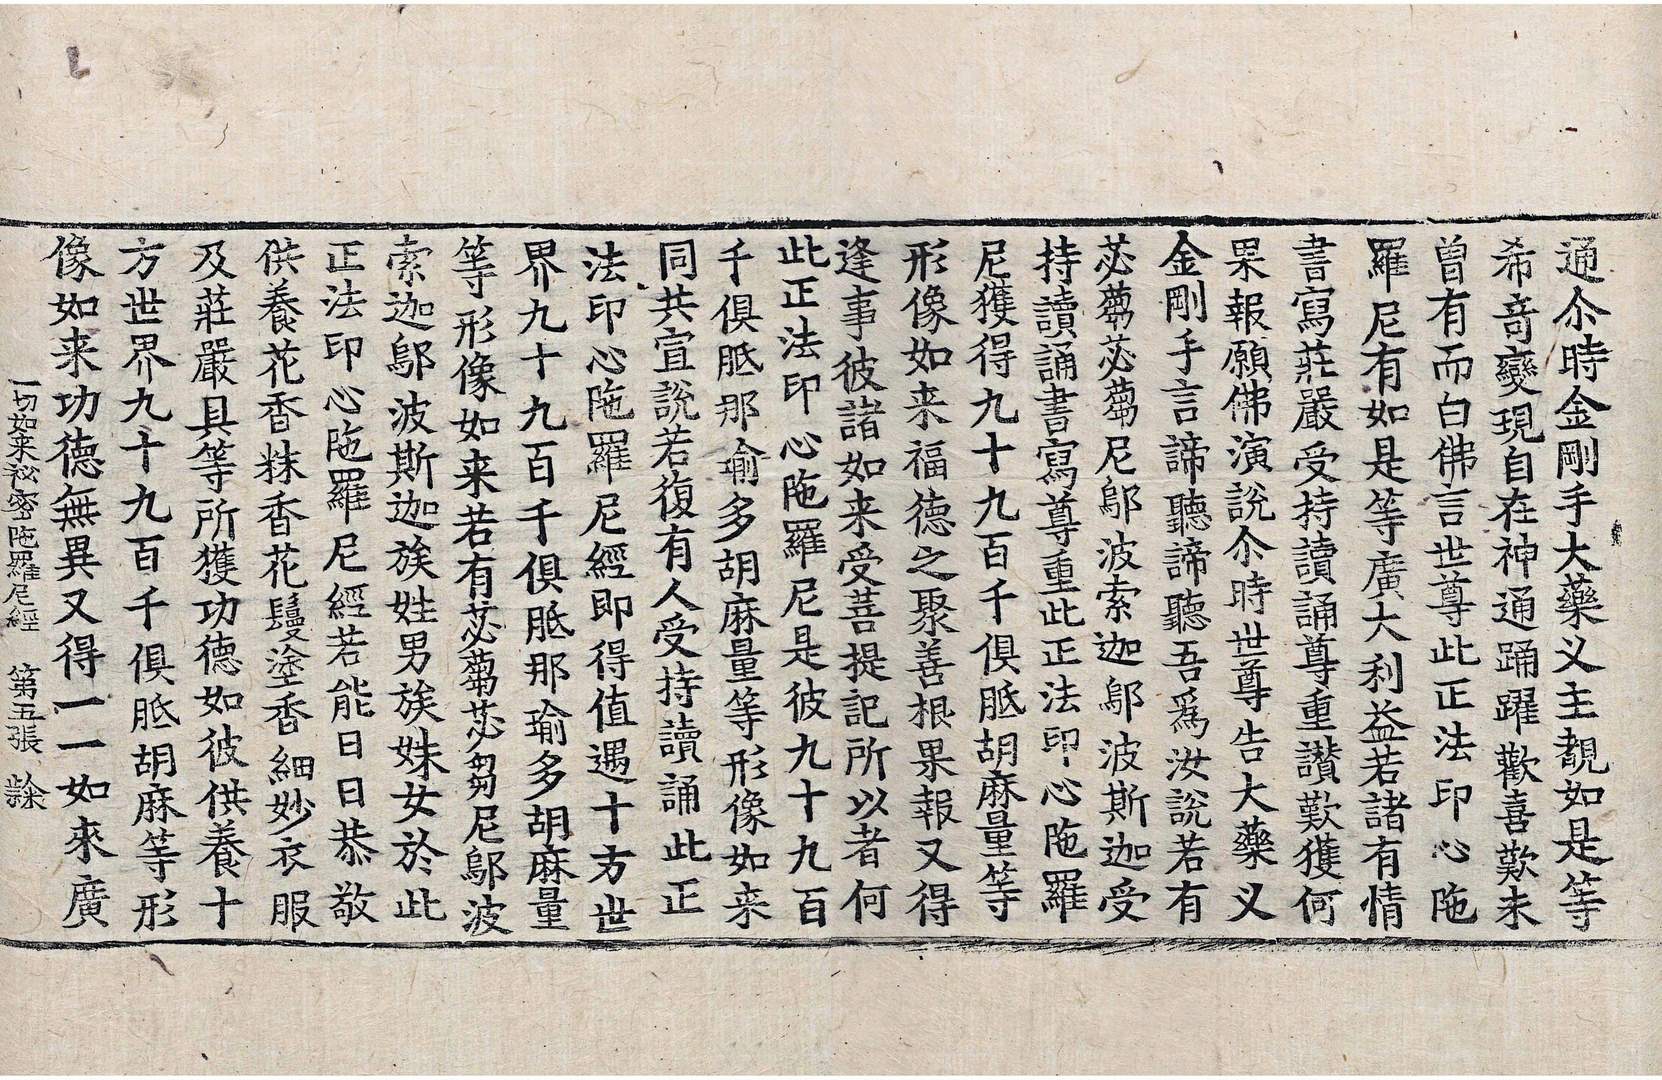 通尒時金剛手大藥义主覩如是等
希竒變現自在神通踊躍歡喜歎未
曾有而白佛言世尊此正法印心陁
羅尼有如是等廣大利益若諸有情
書寫莊嚴受持讀誦尊重讃歎獲何
果報願佛演說尒時世尊告大藥义
金剛手言諦聽諦聽吾爲汝說若有
苾蒭苾蒭尼鄔波索迦鄔波斯迦受
持讀誦書寫尊重此正法印心陁羅
尼獲得九十九百千俱胝胡麻量等
形像如来福德之聚善根果報又得
逢事彼諸如来受菩提記所以者何
此正法印心陁羅尼是彼九十九百
千俱胝那瑜多胡麻量等形像如来
同共宣說若復有人受持讀誦此正
法印心陁羅尼經即得值遇十方世
界九十九百千俱胝那瑜多胡麻量
等形像如来若有苾蒭苾芻尼鄔波
索迦鄔波斯迦族姓男族姝女於此
正法印心陁羅尼經若能日日恭敬
供養花香粖香花鬘塗香細妙衣服
及莊嚴具等所獲功德如彼供養十
方世界九十九百千俱胝胡麻等形
像如来功德無異又得一一如來廣
一切如来祕密陁羅尼經　第五張